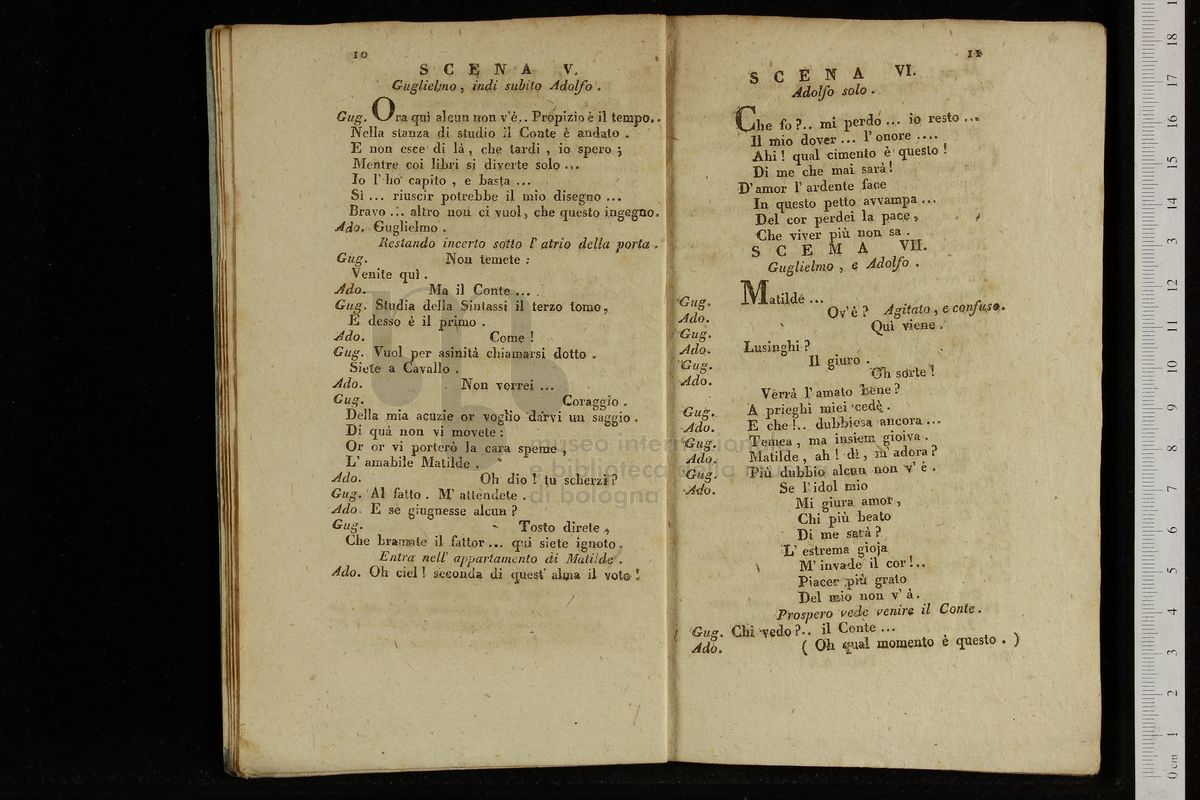 10
SCENA V.
Guglielmo, indi subito Adolfo.
Gug. Ora quì alcun non v'é.. Propizio è il tempo..
Nella stanza di studio il Conte è andato.
E non esce di là, che tardi, io spero;
Mentre coi libri si diverte solo...
Io l'ho capito, e basta...
Sì... riuscir potrebbe il mio disegno...
Bravo... altro non ci vuol, che questo ingegno.
Ado. Guglielmo.
Restando incerto sotto l'atrio della porta.
Gug. Non temete:
Venite quì.
Ado. Ma il Conte...
Gug. Studia della Sintassi il terzo tomo,
E desso è il primo.
Ado. Come!
Gug. Vuol per asinità chiamarsi dotto.
Siete a Cavallo.
Ado. Non vorrei...
Gug. Coraggio.
Della mia acuzie or voglio darvi un saggio.
Di quà non vi movete:
Or or vi porterò la cara speme,
L'amabile Matilde.
Ado. Oh dio! tu scherzi?
Gug. Al fatto. M'attendete.
Ado. E se giugnesse alcun?
Gug. Tosto direte,
Che bramate il fattor... quì siete ignoto.
Entra nell'appartamento di Matilde.
Ado. Oh ciel! seconda di quest'alma il voto!
11
SCENA VI.
Adolfo solo.
Che fo?.. mi perdo... io resto...
Il mio dover... l'onore....
Ahi! qual cimento è questo!
Di me che mai sarà!
D'amor l'ardente face
In questo petto avvampa...
Del cor perdei la pace,
Che viver più non sa.
SCEMA VII.
Guglielmo, e Adolfo.
Gug. Matilde...
Ado. Ov'è? Agitato, e confuso.
Gug. Quì viene.
Ado. Lusinghi?
Gug. Il giuro.
Ado. Oh sorte!
Verrà l'amato bene?
Gug. A prieghi miei cedè.
Ado. E che!.. dubbiosa ancora...
Gug. Temea, ma insiem gioiva.
Ado. Matilde, ah! dì, m'adora?
Gug. Più dubbio alcun non v'è.
Ado. Se l'idol mio
Mi giura amor,
Chi più beato
Di me sarà?
L'estrema gioja
M'invade il cor!..
Piacer più grato
Del mio non v'à.
Prospero vede venire il Conte.
Gug. Chi vedo?.. il Conte...
Ado. (Oh qual momento è questo.)
museo internazionale
e biblioteca della musica
di bologna
0 cm 1 2 3 4 5 6 7 8 9 10 11 12 13 14 15 16 17 18